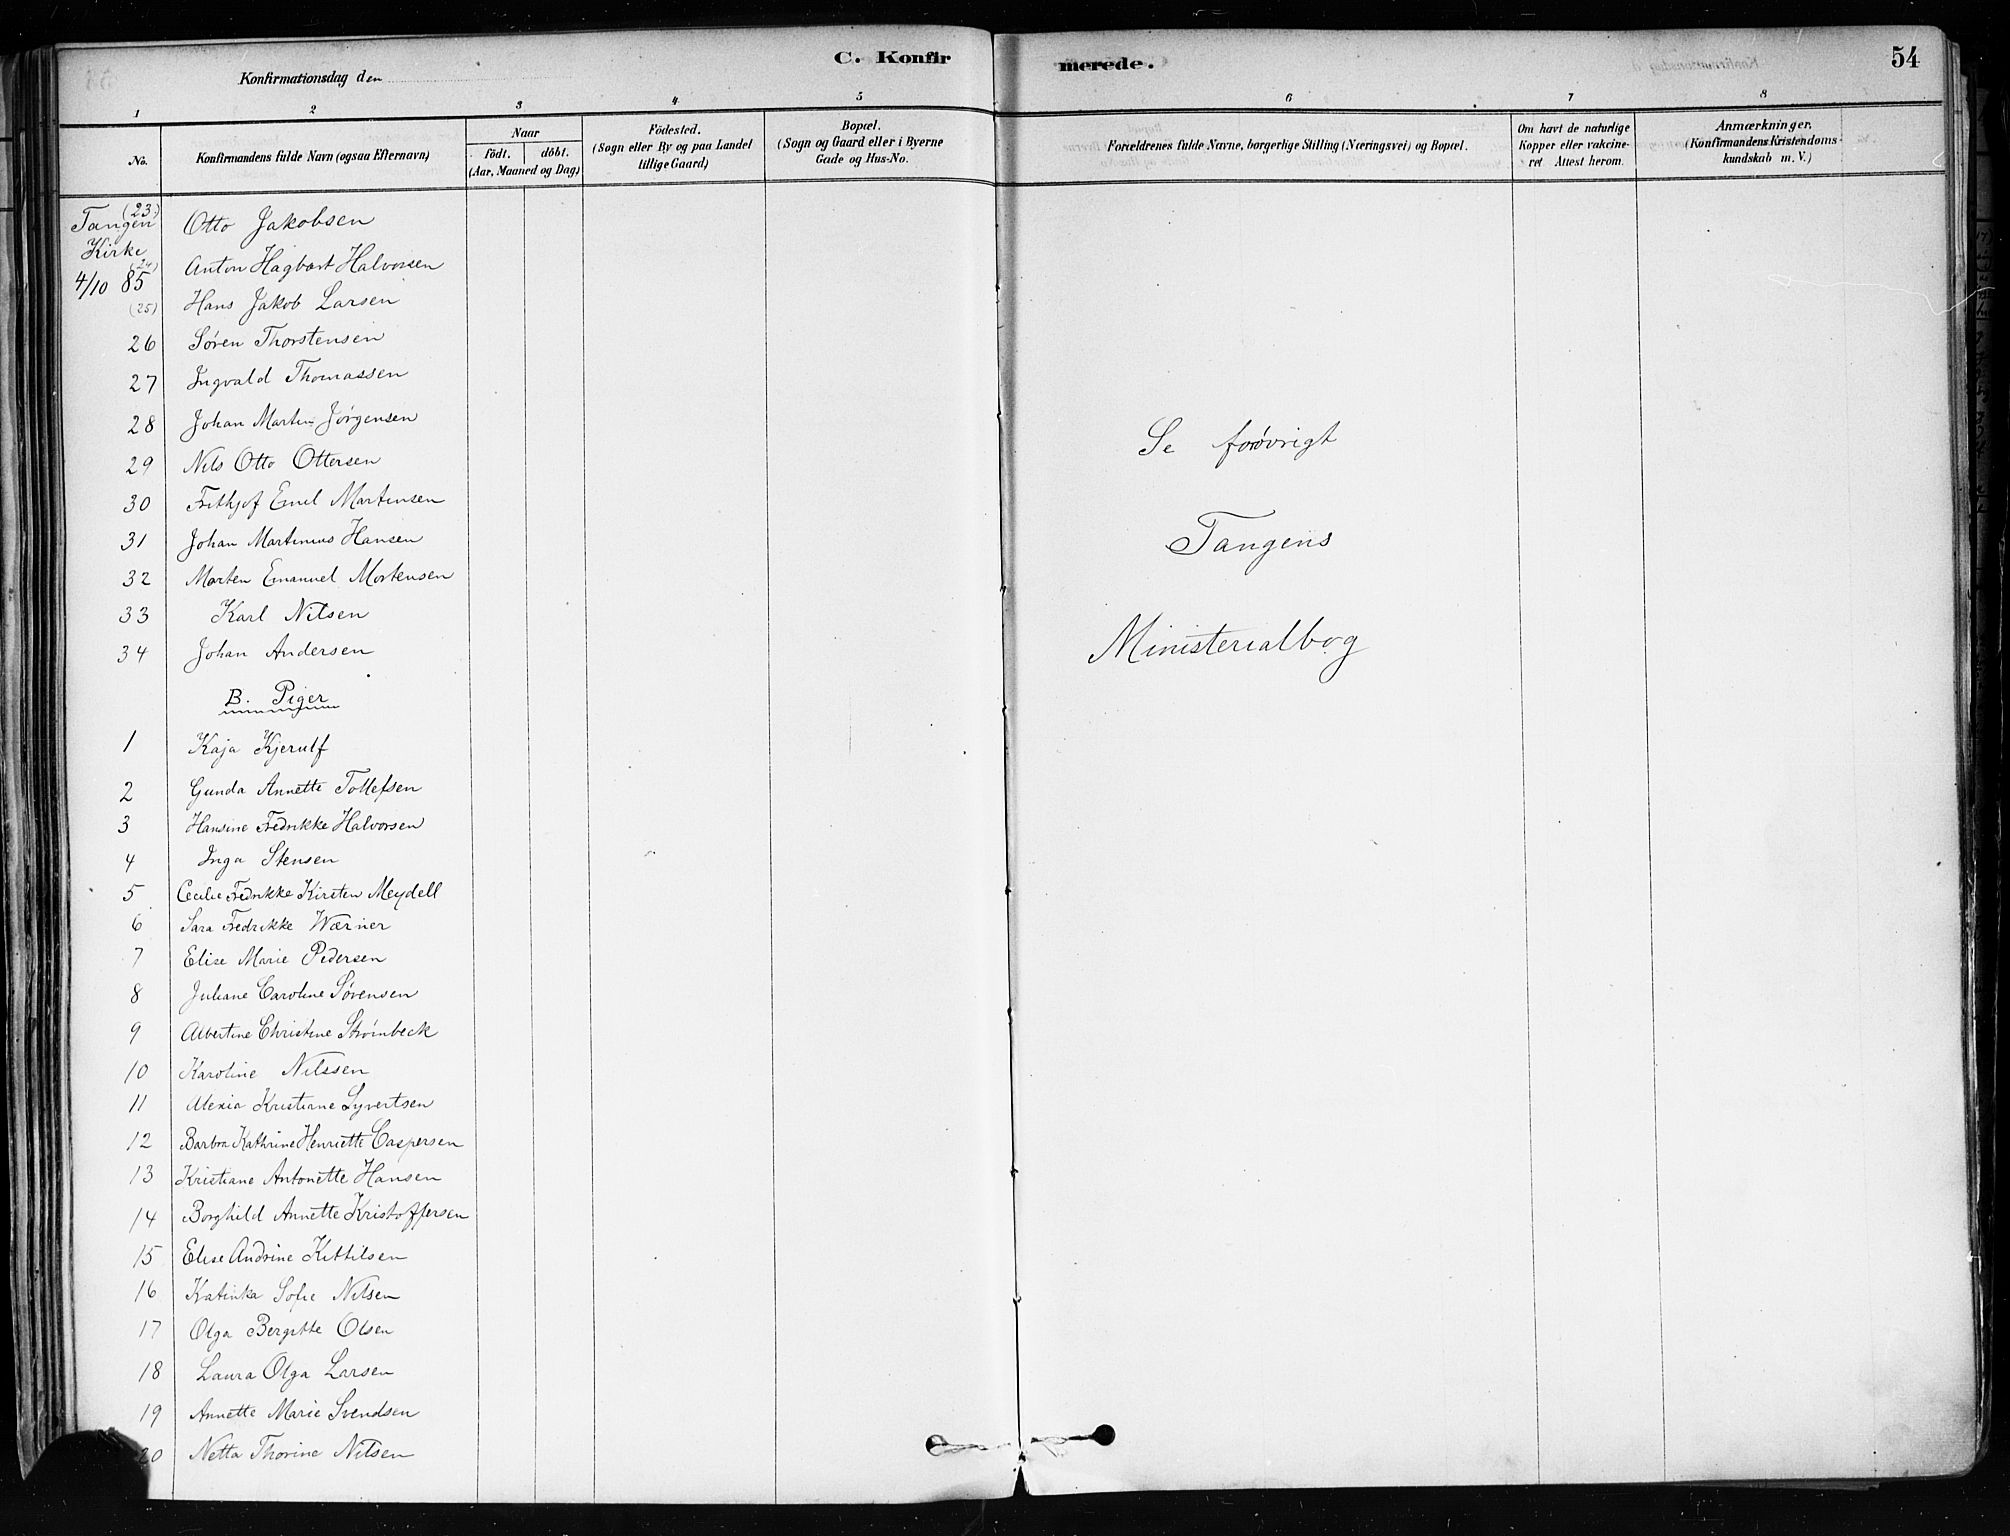 C. Konfirmerede.
54
Konfirmationsdag den
1 2 3 4 5 6 7 8
No.
Konfirmandens fulde Navn (ogsaa Efternavn)
Naar
födt. döbt.
(Aar, Maaned og Dag)
Födested.
(Sogn eller By og paa Landet
tillige Gaard)
Bopæl.
(Sogn og Gaard eller i Byerne
Gade og Hus-No.
Forældrenes fulde Navne, borgerlige Stilling (Næringsvei) og Bopæl.
Om havt de naturlige
Kopper eller vakcine-
ret Attest herom.
Anmærkninger.
(Konfirmandens Kristendoms-
kundskab m. V.)
Tangen
Kirke
4/10 85
(23) Otto Jakobsen
(24) Anton Hagbart Halvorsen
(25) Hans Jakob Larsen
26 Søren Thorstensen
27 Ingvald Thomassen
28 Johan Martin Jørgensen
29 Nils Otto Ottersen
30 Frithjof Emil Martinsen
31 Johan Martinius Hansen
32 Morten Emanuel Mortensen
33 Karl Nilsen
34 Johan Andersen
B. Piger
1 Kaja Kjerulf
2 Gunda Annette Tollefsen
3 Hansine Fredrikke Halvorsen
4 Inga Stensen
5 Cecilie Fredrikke Kirsten Meydell
6 Sara Fredrikke Wærner
7 Elise Marie Pedersen
8 Juliane Caroline Sørensen
9 Albertine Christine Strømbeck
10 Karoline Nilssen
11 Alexia Kristiane Syvertsen
12 Barbra Kathrine Henriette Caspersen
13 Kristiane Antonette Hansen
14 Borghild Annette Kristoffersen
15 Elise Andrine Kittilsen
16 Katinka Sofie Nilsen
17 Olga Bergitte Olsen
18 Laura Olga Larsen
19 Annette Marie Svendsen
20 Netta Thorine Nilsen
Se forøvrigt
Tangens
Ministerialbog